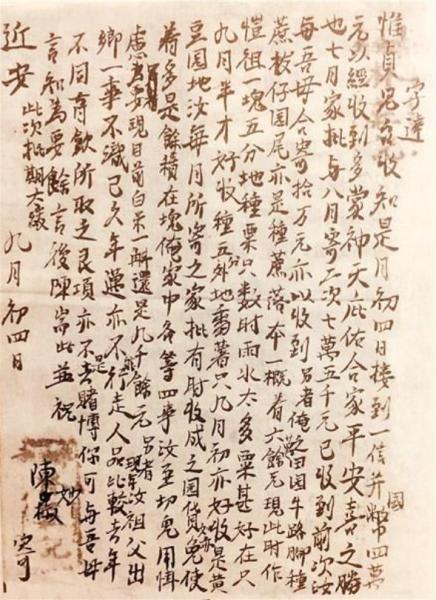 字達
惟貞兄台收知是月初四日接到一信并國幣四萬
元以經收到多蒙神天庇佑合家平安喜之勝
也七月家批与八月寄二次七萬五千元已收到前次汝
每吾母合寄拾万元亦以收到另者俺之田园牛路脚種
蔗坡仔园尾亦是種蔗落本一概看六餘元現此时作
愷祖一塊五分地種粟只数时雨水太多粟甚好在只
九月半才好收種五外地番薯只九月初亦好收是黄
豆园地汝每月所寄之家批有时收成之园貨免使
着多是餘積在塊俺家中各等四事汝至切免用惧
慮要現目前白米一斛還是九千餘元另者現年汝祖父出
鄉一事不識已久年邁亦不行走人品比較去年
不同育飲所取之良項亦不是去賭博你可与吾母
言知為要餘言後陳耑此並祝
近安 此次批期太緩 九月初四日
陳妙 寄